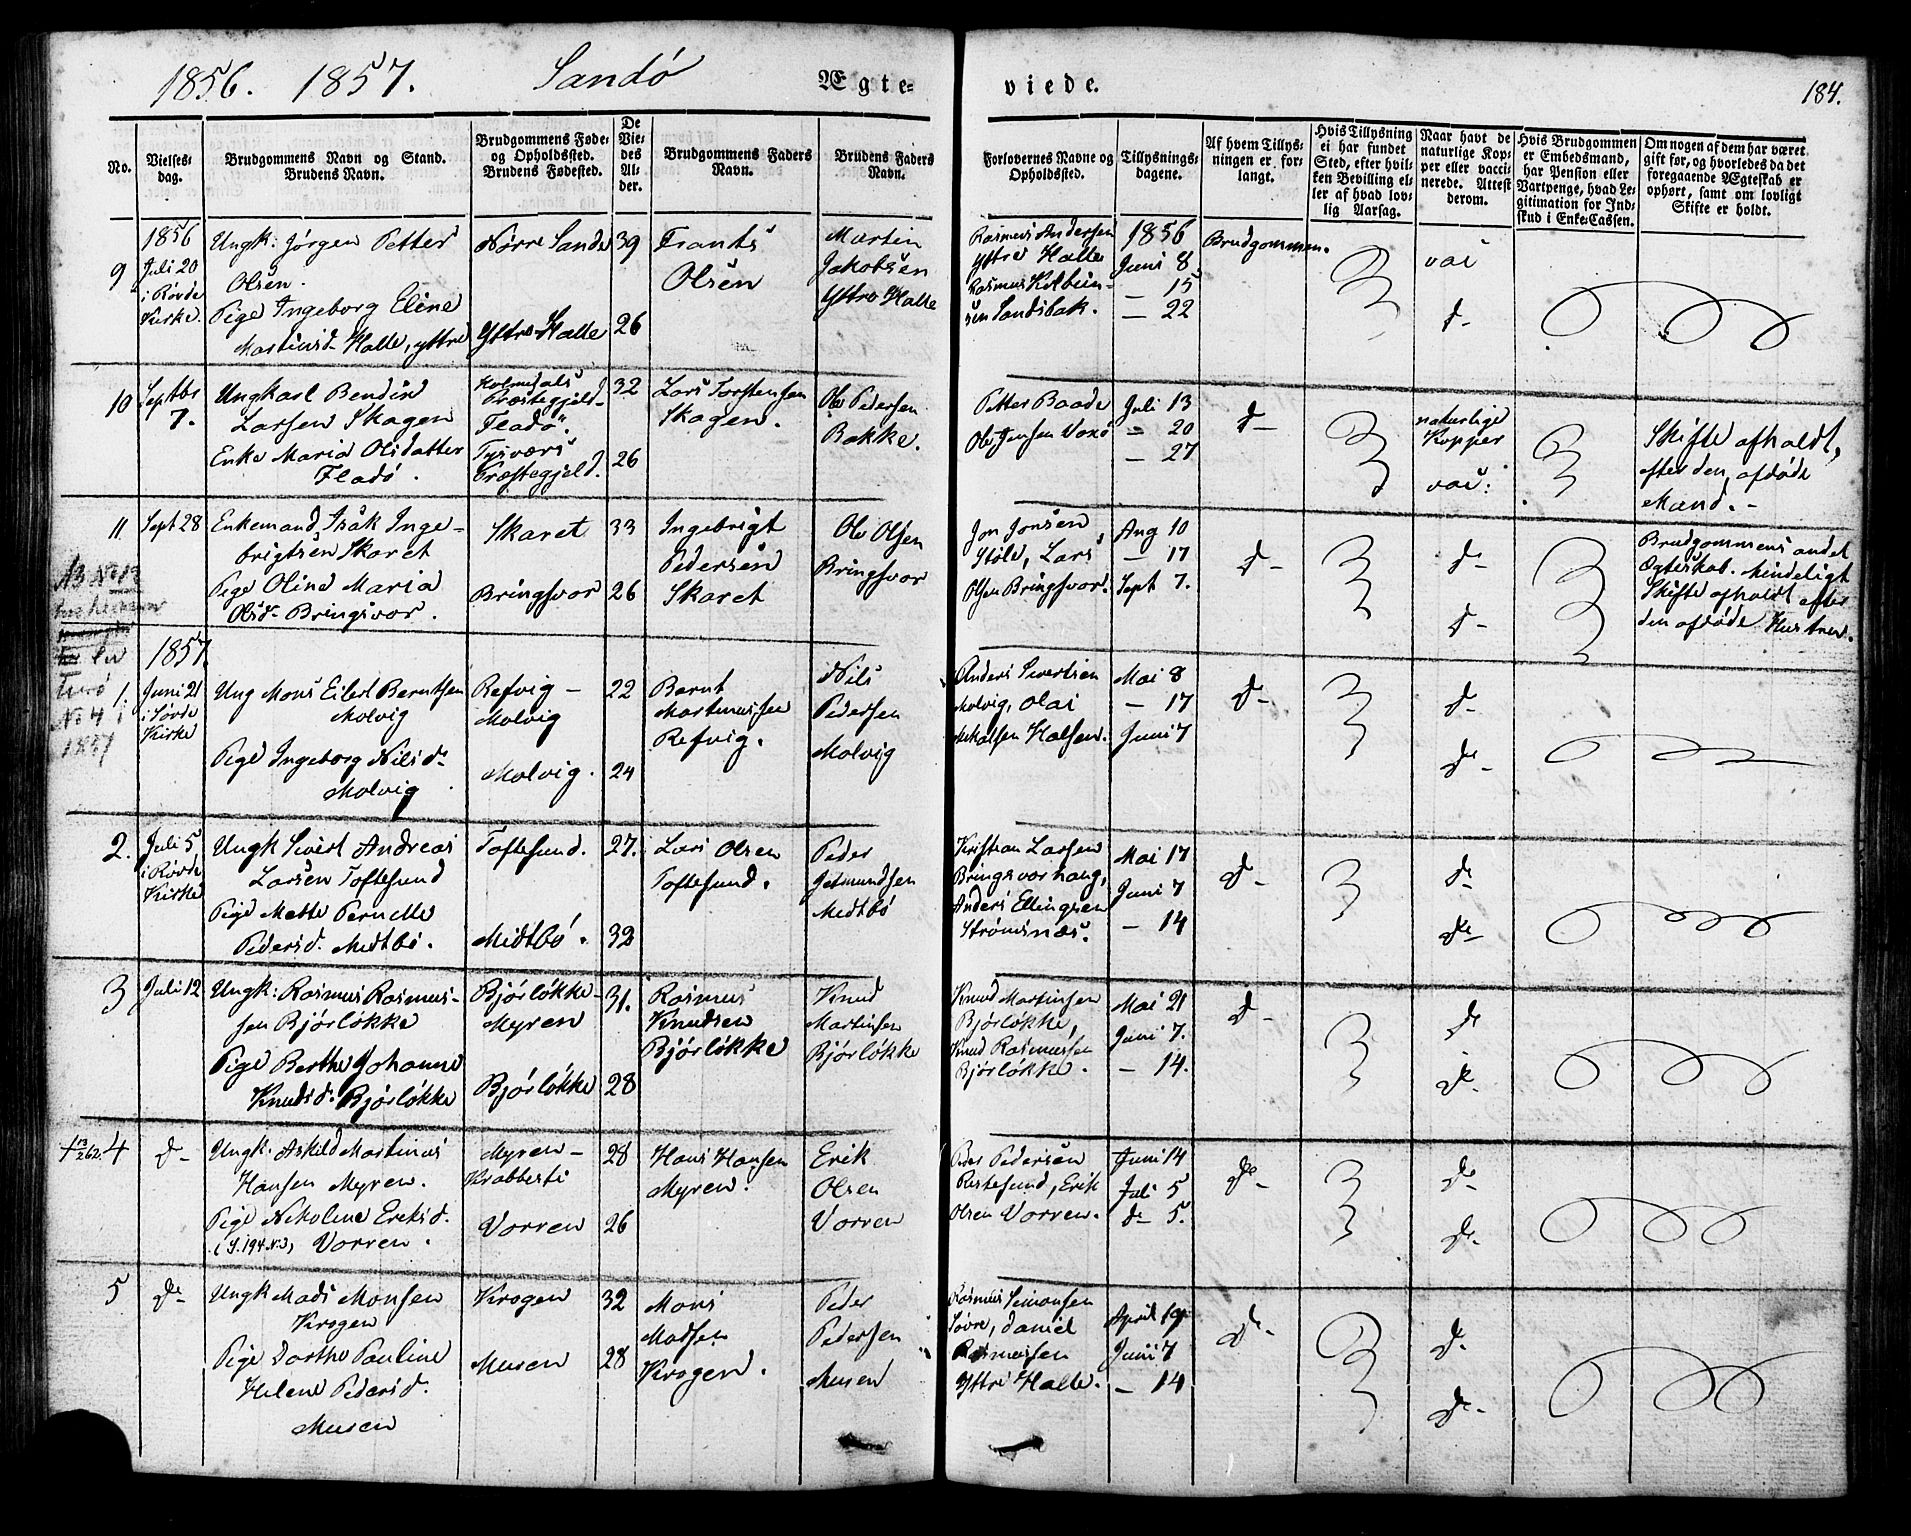 1856. 1857. Sandö Ægte-
viede. 184.
No.
Vielses-
dag.
Brudgommens Navn og Stand.
Brudens Navn.
Brudgommens Føde-
og Opholdssted.
Brudens Fødested.
De
Vie-
des
Al-
der.
Brudgommens Faders
Navn.
Brudens Faders
Navn.
Forlovernes Navne og
Opholdssted.
Tillysnings-
dagene.
Af hvem Tillys-
ningen er for-
langt.
Hvis Tillysning
ei har fundet
Sted, efter hvil-
ken Bevilling el-
ler af hvad lov-
lig Aarsag.
Naar havt de
naturlige Kop-
per eller vacci-
nerede. Attest
derom.
Hvis Brudgommen
er Embedsmand,
har Pension eller
Vartpenge, hvad Le-
gitimation for Ind-
skud i Enke-Cassen.
Om nogen af dem har været
gift før, og hvorledes da det
foregaaende Ægteskab er
ophørt, samt om lovligt
Skifte er holdt.
9
1856
Juli 20
i Røvde
Kirke.
Ungk: Jörgen Petter
Olsen.
Pige Ingeborg Eline
Martinsd. Halle, yttre
Nörre Sande
Yttre Halle
39
26
Frants
Olsen
Martin
Jakobsen
Yttre Halle
Rasmus Andersen
Yttre Halle
Rasmus
sen Sandsbak.
1856
Juni 8
— 15
— 22
Brudgommen.
vac
d-
10
Septbr
7.
Ungkarl Bendix
Larsen Skagen
Enke Maria Olsdatter
Fladö.
Præstegjeld-
Fladö.
Tysværs
Præstegjeld.
32
26
Lars Torstensen
Skagen.
Ole Pedersen
Bakke.
Petter Baade
Ole Jensen Voxö
Juli 13
— 20
— 27
d-
naturlige
Kopper
vac:
Skifte afholdt,
efter den afdöde
Mand. -
11
Sept 28
Enkemand Isak Inge-
brigtsen Skaret
Pige Oline Maria
Olsd. Bringsvor.
Skaret
Bringsvor
33
26
Ingebrigt
Pedersen
Skaret
Ole Olsen
Bringsvor
Jon Jonsen
Støle, Lars
Olsen Bringsvor.
Aug 10
— 17
Sept 7.
d-
d-
d-
Brudgommens andet
Ægteskab. Mindeligt
Skifte afholdt efter
den afdöde Hustrue.
NB No 12
No 4 i
1857
1857
1.
Juni 21
i Søvde
Kirke
Ung Mons Eilert Berntsen
Molvig
Pige Ingeborg Nilsd.
Molvig
Refvig -
Molvig
Molvig.
22
24
Bernt
Martinussen
Refvig.
Nils
Pedersen
Molvig
Anders Sivertsen
Molvig, Olai
Mikalsen Halsen.
Mai 8
— 17
Juni 7
d-
d-
d-
2.
Juli 5
i Røvde
Kirke
Ungk Sivert Andreas
Larsen Toftesund
Pige Mette Pernelle
Pedersd. Medtbö.
Toftesund.
Medtbö.
27.
32
Lars Olsen
Toftesund.
Peder
Getmundsen
Medtbö
Kristian Larsen
Bringsvorhaug,
Anders Ellingsen
Strömsnæs.
Mai 17
Juni 7
— 14
d-
d-
d-
3
Juli 12
Ungk: Rasmus Rasmus-
sen Bjørløkke
Pige Berthe Johanne
Knudsd. Bjørløkke
Bjørløkke-
Myren
Bjørløkke
31.
28
Rasmus
Knudsen
Bjørløkke
Knud
Martinsen
Bjørløkke
Knud Martinsen
Bjørløkke,
Knud Rasmussen
Bjørløkke.
Mai 21
Juni 7.
— 14.
d-
d-
d-
4
d-
Ungk. Askild Martinus
Hansen Myren.
Pige Nikoline Eriksd.
(S. 194 N. 3) Vorren.
Myren -
Krabbesti
Vorren
28
26
Hans Hansen
Myren.
Erik
Olsen
Vorren
Peder Pedersen
Restesund, Erik
Olsen Vorren.
Juni 14
Juli 5
d- 5.
d-
d-
d-
5
d-
Ungk Mads Monsen
Krogen
Pige Dorthe Pauline
Helene Pedersd.
Musen
Krogen
Musen
32
28
Mons
Madsen
Krogen.
Peder
Pedersen
Musen
Rasmus Simonsen
Søvre, Daniel
Rasmussen
Yttre Halle.
April 19
Juni 7
— 14
d-
d-
d-